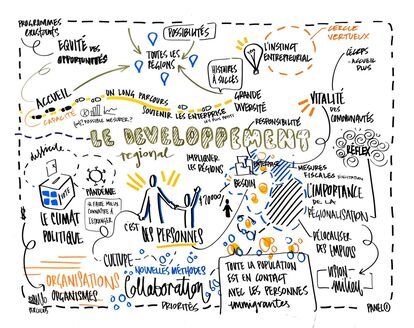 PROGRAMMES
EXISTANTS
EQUITÉ DES
OPPORTUNITÉS
POSSIBILITÉS
TOUTES LES
RÉGIONS
L'INSTINCT
ENTREPRENEURIAL
CERCLE
VERTUEUX
ACCUEIL
PLUS
HISTOIRES
À SUCCÈS
ACCUEIL
CAPACITÉ
UN LONG PARCOURS
SOUTENIR LES ENTREPRISES
POSSIBLE MESURER?
GRANDE
DIVERSITÉ
RESPONSABILITÉ
VITALITÉ
DES
COMMUNAUTÉS
LE DEVELOPPEMENT
regional
RÉFLEX
IMPLIQUER
LES RÉGIONS
BESOIN
MESURES
FISCALES
L'IMPORTANCE
DE LA
RÉGIONALISATION
VOTE
PANDÉMIE
LE CLIMAT
POLITIQUE
SE FAIRE MIEUX
CONNAÎTRE À
L'ÉTRANGER
C'EST
DES PERSONNES
DÉLOCALISER
DES EMPLOIS
CULTURE
NOUVELLES MÉTHODES
Collaboration
PRIORITÉS
ORGANISATIONS
ORGANISMES
TOUTE LA POPULATION
EST EN CONTACT
AVEC LES PERSONNES
immigrantes
VISION
milieu
PANEL